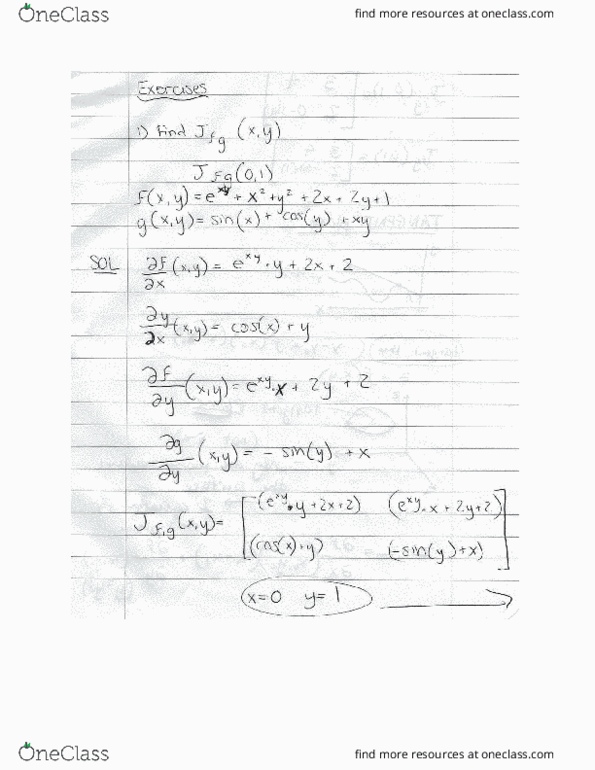 OneClass
find more resources at oneclass.com
Exercises
1) Find J_f,g (x,y)
J_f,g(0,1)
f(x,y) = e^xy + x² + y² + 2x + 2y + 1
g(x,y) = sin(x) + cos(y) + xy
SOL ∂f/∂x (x,y) = e^xy · y + 2x + 2
∂y/∂x (x,y) = cos(x) + y
∂f/∂y (x,y) = e^xy · x + 2y + 2
∂g/∂y (x,y) = - sin(y) + x
J_f,g (x,y) = [ (e^xy · y + 2x + 2) (e^xy · x + 2y + 2)
(cos(x) + y) (-sin(y) + x) ]
x=0 y=1
OneClass
find more resources at oneclass.com